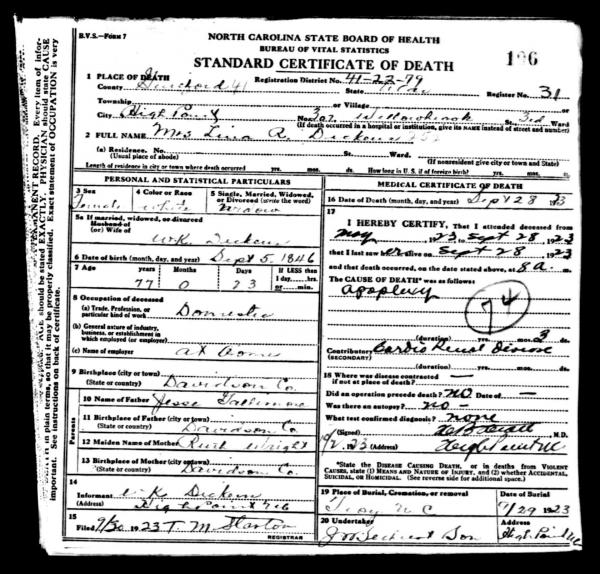 B.V.S.—FORM 7
NORTH CAROLINA STATE BOARD OF HEALTH
BUREAU OF VITAL STATISTICS
STANDARD CERTIFICATE OF DEATH
196
1 PLACE OF DEATH
County Guilford 41 Registration District No. 41-22-79 Register No. 31
Township or Village
City High Point No. 307 Willowbrook St. 3rd Ward
(If death occurred in a hospital or institution, give its NAME instead of street and number)
2 FULL NAME Mrs Lina R. Dickens
(a) Residence. No. St. Ward.
(Usual place of abode) (If nonresident give city or town and State)
Length of residence in city or town where death occurred yrs. mos. ds. How long in U. S., if of foreign birth? yrs. mos. ds.
PERSONAL AND STATISTICAL PARTICULARS
3 Sex Female
4 Color or Race White
5 Single, Married, Widowed, or Divorced (write the word) Widow
5a If married, widowed, or divorced
Husband of
(or) Wife of W.K. Dickens
6 Date of birth (month, day, and year) Sept 5, 1846
7 Age Years Months Days If LESS than
1 day, hrs.
or min.
77 0 23
8 Occupation of deceased
(a) Trade, Profession, or
particular kind of work Domestic
(b) General nature of industry,
business, or establishment in
which employed (or employer)
(c) Name of employer at home
9 Birthplace (city or town) Davidson Co.
(State or country)
Parents
10 Name of Father Jesse Gallimore
11 Birthplace of Father (city or town)
(State or country) Davidson Co
12 Maiden Name of Mother Ruth Wright
13 Birthplace of Mother (city or town)
(State or country) Davidson Co
14
Informant W.K. Dickens
(Address) High Point NC
15
Filed 9/30 1923 T. M. Stanton
REGISTRAR
MEDICAL CERTIFICATE OF DEATH
16 Date of Death (month, day, and year) Sept 28 1923
17
I HEREBY CERTIFY, That I attended deceased from
May 23, 1923, Sept 28, 1923
that I last saw her alive on Sept 28, 1923
and that death occurred, on the date stated above, at 8 a. m.
The CAUSE OF DEATH* was as follows
Apoplexy
74
(duration) yrs. 3 ds.
Contributory Cardio Renal Disease
(SECONDARY)
(duration) yrs. mos. ds.
18 Where was disease contracted
if not at place of death?
Did an operation precede death? no Date of —
Was there an autopsy? no —
What test confirmed diagnosis? none
(Signed) M.D.
10/2, 23 (Address) High Point NC
*State the DISEASE CAUSING DEATH, or in deaths from VIOLENT
CAUSES, state (1) MEANS AND NATURE OF INJURY, and (2) whether ACCIDENTAL,
SUICIDAL, or HOMICIDAL. (See reverse side for additional space.)
19 Place of Burial, Cremation, or removal Date of Burial
Troy N C 9/29 1923
20 Undertaker Address
J W Sechrest Son High Point NC
PERMANENT RECORD. Every item of infor-
PHYSICIAN should state CAUSE
Exact statement of OCCUPATION is very
in plain terms, so that it may be properly classified.
important. See instructions on back of certificate.